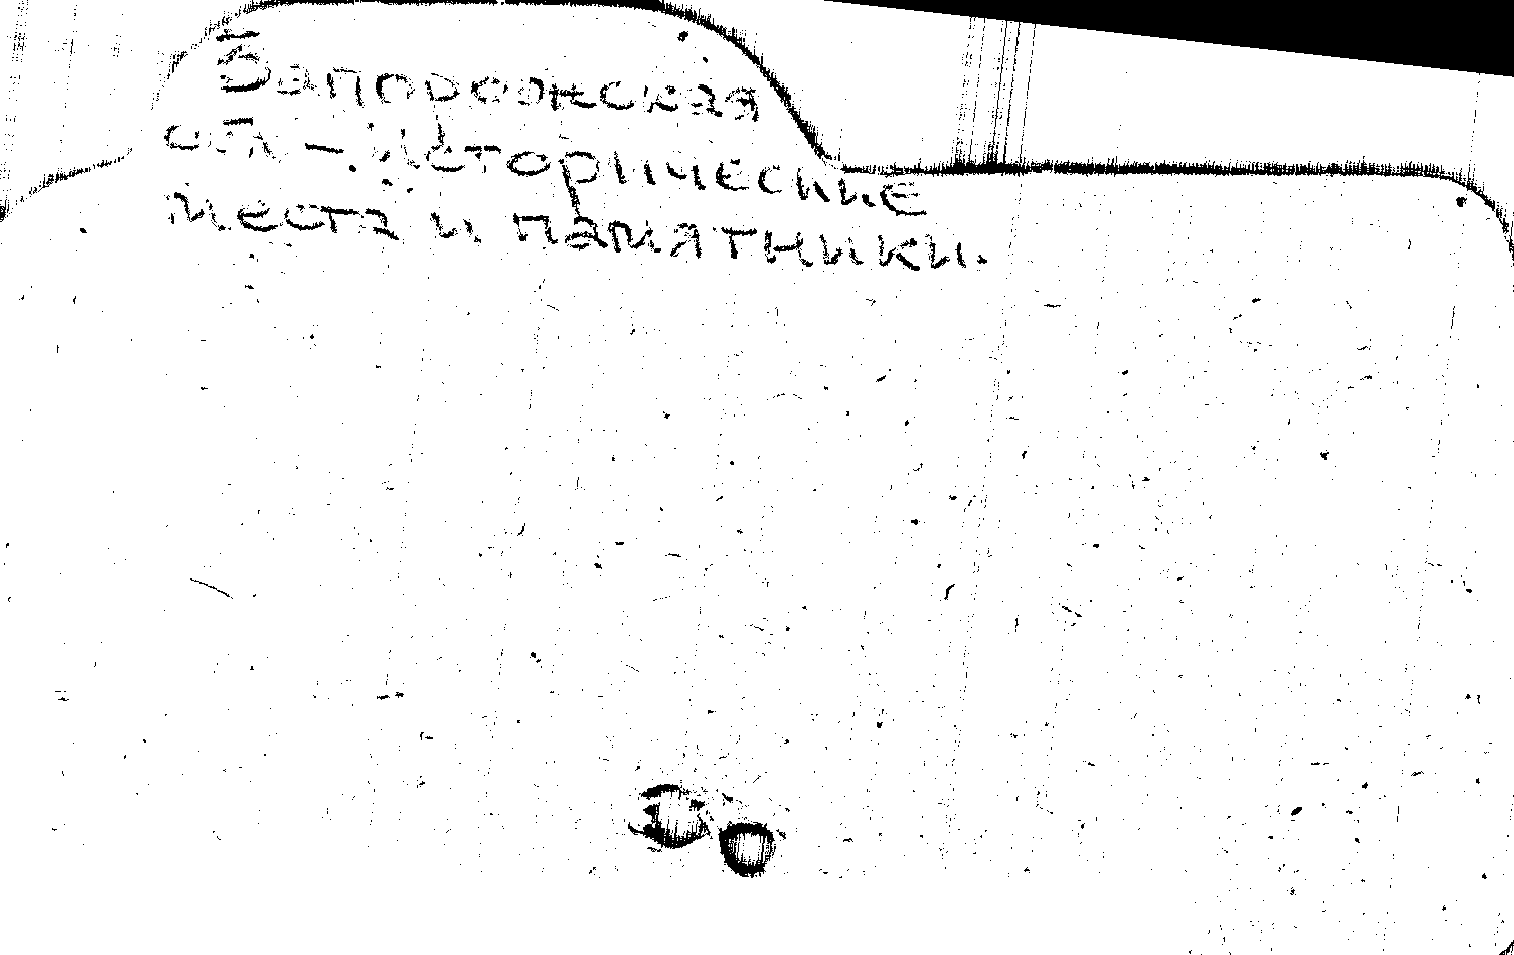 Запорожская
обл – Исторические
места и памятники.